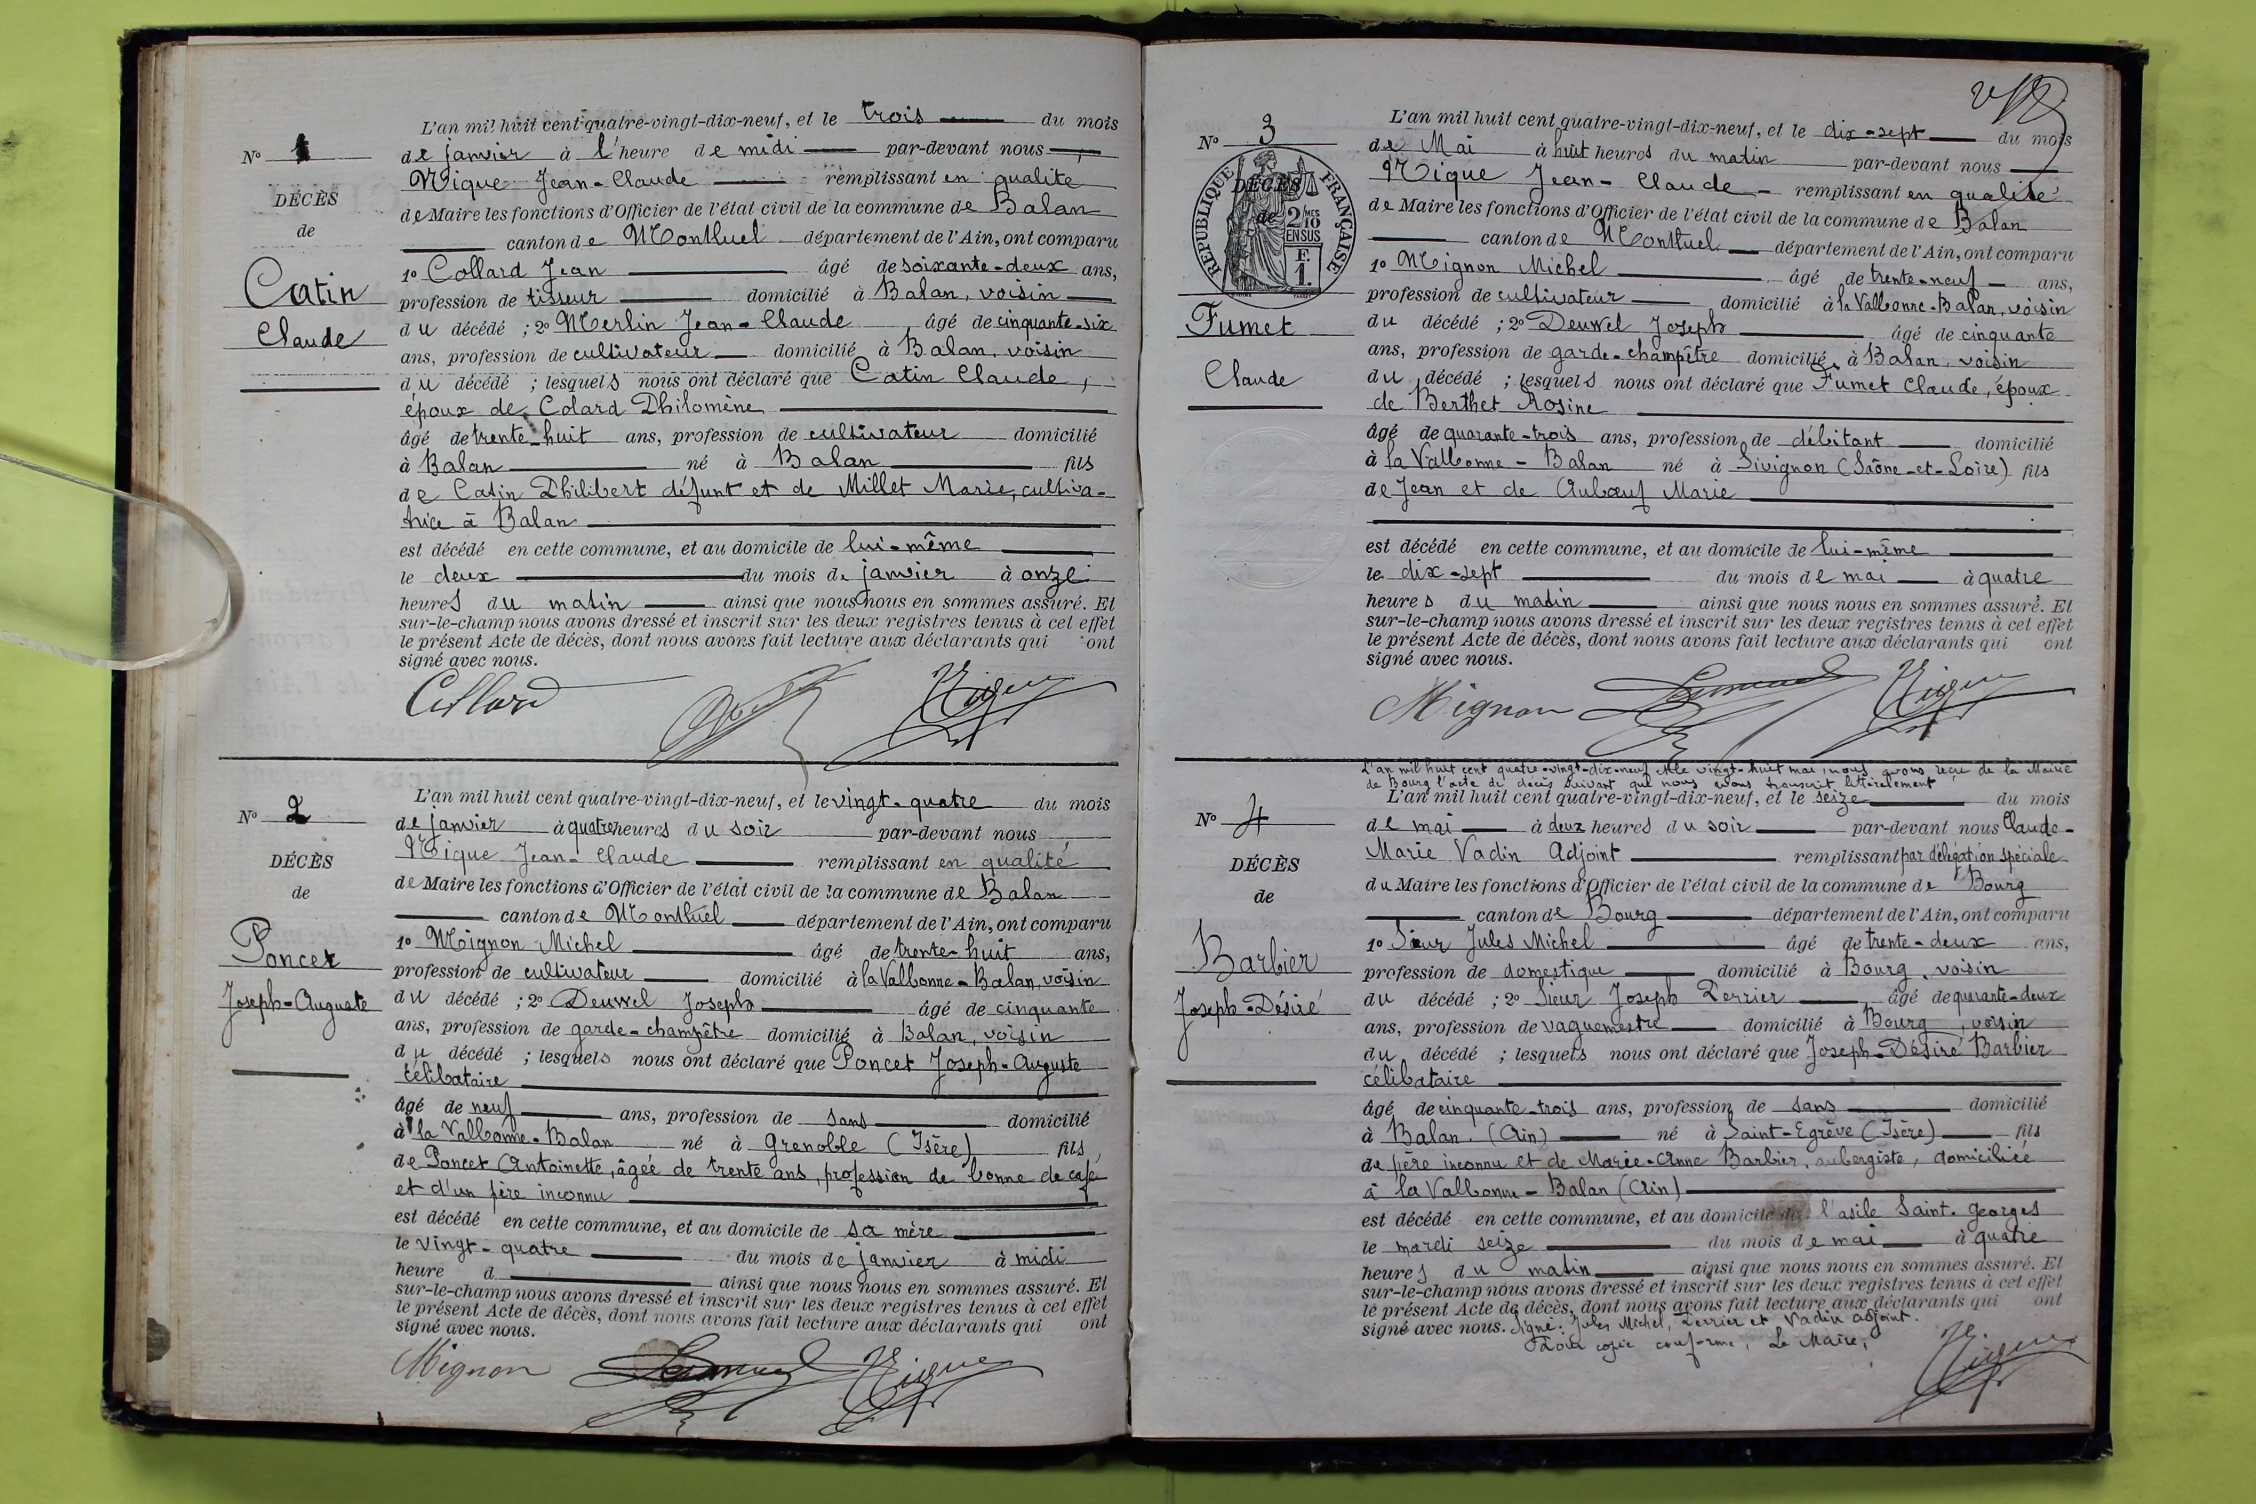 N° 1
DÉCÈS
de
Catin
Claude
L'an mil huit cent quatre-vingt-dix-neuf, et le trois du mois
de janvier à l'heure de midi par-devant nous
Nique Jean-Claude remplissant en qualité
de Maire les fonctions d'Officier de l'état civil de la commune de Balan
canton de Montluel département de l'Ain, ont comparu
1° Collard Jean âgé de soixante-deux ans,
profession de tisseur domicilié à Balan, voisin
du décédé ; 2° Merlin Jean-Claude âgé de cinquante-six
ans, profession de cultivateur domicilié à Balan, voisin
du décédé ; lesquels nous ont déclaré que Catin Claude,
époux de Colard Philomène
âgé de trente-huit ans, profession de cultivateur domicilié
à Balan né à Balan fils
de Catin Philibert défunt et de Millet Marie, cultiva-
trice à Balan
est décédé en cette commune, et au domicile de lui-même
le deux du mois de janvier à onze
heures du matin ainsi que nous nous en sommes assuré. Et
sur-le-champ nous avons dressé et inscrit sur les deux registres tenus à cet effet
le présent Acte de décès, dont nous avons fait lecture aux déclarants qui ont
signé avec nous.
Collard Nique
N° 2
DÉCÈS
de
Poncet
Joseph-Auguste
L'an mil huit cent quatre-vingt-dix-neuf, et le vingt-quatre du mois
de janvier à quatre heures du soir par-devant nous
Nique Jean-Claude remplissant en qualité
de Maire les fonctions d'Officier de l'état civil de la commune de Balan
canton de Montluel département de l'Ain, ont comparu
1° Mignon Michel âgé de trente-huit ans,
profession de cultivateur domicilié à la Valbonne-Balan, voisin
du décédé ; 2° Deuwel Joseph âgé de cinquante
ans, profession de garde-champêtre domicilié à Balan, voisin
du décédé ; lesquels nous ont déclaré que Poncet Joseph-Auguste
célibataire
âgé de neuf ans, profession de sans domicilié
à la Valbonne-Balan né à Grenoble (Isère) fils
de Poncet Antoinette, âgée de trente ans, profession de bonne de café
et d'un père inconnu
est décédé en cette commune, et au domicile de sa mère
le vingt-quatre du mois de janvier à midi
heure d ainsi que nous nous en sommes assuré. Et
sur-le-champ nous avons dressé et inscrit sur les deux registres tenus à cet effet
le présent Acte de décès, dont nous avons fait lecture aux déclarants qui ont
signé avec nous.
Mignon Nique
N° 3
RÉPUBLIQUE FRANÇAISE
2/10MES
EN SUS
F.
1.
DÉCÈS
de
Fumet
Claude
L'an mil huit cent quatre-vingt-dix-neuf, et le dix-sept du mois
de Mai à huit heures du matin par-devant nous
Nique Jean-Claude remplissant en qualité
de Maire les fonctions d'Officier de l'état civil de la commune de Balan
canton de Montluel département de l'Ain, ont comparu
1° Mignon Michel âgé de trente-neuf ans,
profession de cultivateur domicilié à la Valbonne-Balan, voisin
du décédé ; 2° Deuwel Joseph âgé de cinquante
ans, profession de garde-champêtre domicilié à Balan, voisin
du décédé ; lesquels nous ont déclaré que Fumet Claude, époux
de Berthet Rosine
âgé de quarante-trois ans, profession de débitant domicilié
à la Valbonne-Balan né à Sivignon (Saône-et-Loire) fils
de Jean et de Aubœuf Marie
est décédé en cette commune, et au domicile de lui-même
le dix-sept du mois de mai à quatre
heures du matin ainsi que nous nous en sommes assuré. Et
sur-le-champ nous avons dressé et inscrit sur les deux registres tenus à cet effet
le présent Acte de décès, dont nous avons fait lecture aux déclarants qui ont
signé avec nous.
Mignon Nique
L'an mil huit cent quatre-vingt-dix-neuf et le vingt-huit mai, nous avons reçu de la Mairie
de Bourg l'acte de décès suivant que nous avons transcrit littéralement
N° 4
DÉCÈS
de
Barbier
Joseph-Désiré
L'an mil huit cent quatre-vingt-dix-neuf, et le seize du mois
de mai à deux heures du soir par-devant nous Claude-
Marie Vadin Adjoint remplissant par délégation spéciale
du Maire les fonctions d'Officier de l'état civil de la commune de Bourg
canton de Bourg département de l'Ain, ont comparu
1° Sieur Jules Michel âgé de trente-deux ans,
profession de domestique domicilié à Bourg, voisin
du décédé ; 2° Sieur Joseph Perrier âgé de quarante-deux
ans, profession de vaguemestre domicilié à Bourg, voisin
du décédé ; lesquels nous ont déclaré que Joseph-Désiré Barbier
célibataire
âgé de cinquante-trois ans, profession de sans domicilié
à Balan (Ain) né à Saint-Egrève (Isère) fils
de père inconnu et de Marie-Anne Barbier, aubergiste, domiciliée
à la Valbonne-Balan (Ain)
est décédé en cette commune, et au domicile de l'asile Saint-Georges
le mardi seize du mois de mai à quatre
heures du matin ainsi que nous nous en sommes assuré. Et
sur-le-champ nous avons dressé et inscrit sur les deux registres tenus à cet effet
le présent Acte de décès, dont nous avons fait lecture aux déclarants qui ont
signé avec nous. Signé: Jules Michel, Perrier et Vadin adjoint.
Pour copie conforme, Le Maire,
Nique